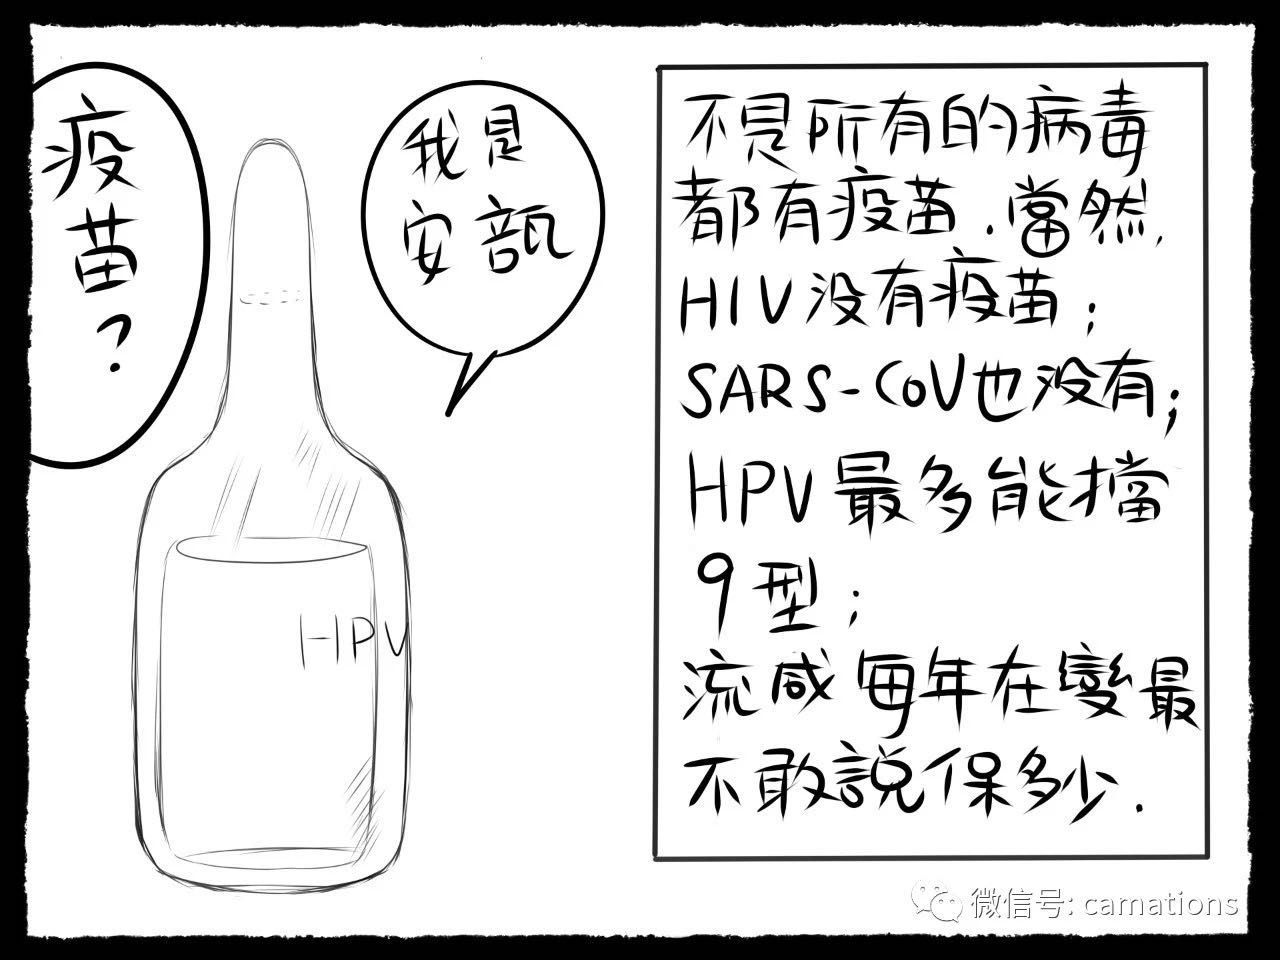 疫
苗?
我是
安瓿
HPV
不是所有的病毒
都有疫苗.當然,
HIV没有疫苗;
SARS-CoV也没有;
HPV最多能擋
9型;
流感每年在變最
不敢説保多少.
微信号: camations